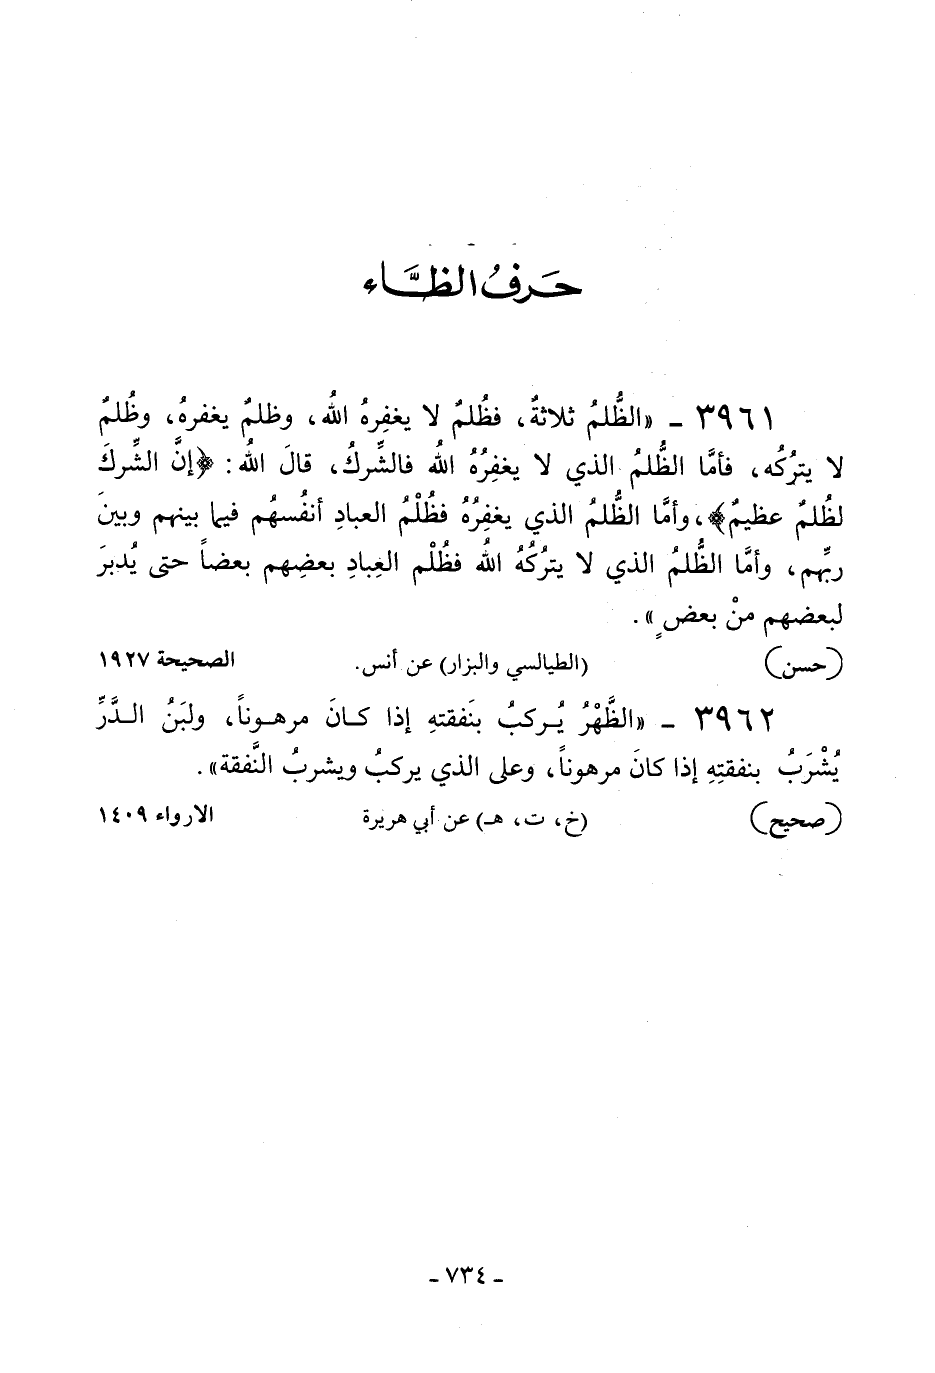 حَرفُ الظَّاء
٣٩٦١ ـ «الظُّلمُ ثلاثةٌ، فظُلمٌ لا يغفِرهُ اللهُ، وظلمٌ يغفرهُ، وظُلمٌ
لا يترُكُه، فأمَّا الظُّلمُ الذي لا يغفِرُهُ اللهُ فالشِّركُ، قالَ اللهُ: ﴿إنَّ الشِّركَ
لظُلمٌ عظيمٌ﴾، وأمَّا الظُّلمُ الذي يغفِرُهُ فظُلْمُ العبادِ أنفُسهُم فيما بينهم وبينَ
ربِّهم، وأمَّا الظُّلمُ الذي لا يترُكُهُ اللهُ فظُلْم العِبادِ بعضِهم بعضاً حتى يُدبرَ
لبعضهم منْ بعضٍ».
(حسن) (الطيالسي والبزار) عن أنس. الصحيحة ١٩٢٧
٣٩٦٢ ـ «الظَّهْرُ يُركبُ بنَفقتهِ إذا كانَ مرهوناً، ولبَنُ الدَّرِّ
يُشْرَبُ بنفقتِهِ إذا كانَ مرهوناً، وعلى الذي يركبُ ويشربُ النَّفقة».
(صحيح) (خ، ت، هـ) عن أبي هريرة الارواء ١٤٠٩
ـ ٧٣٤ ـ